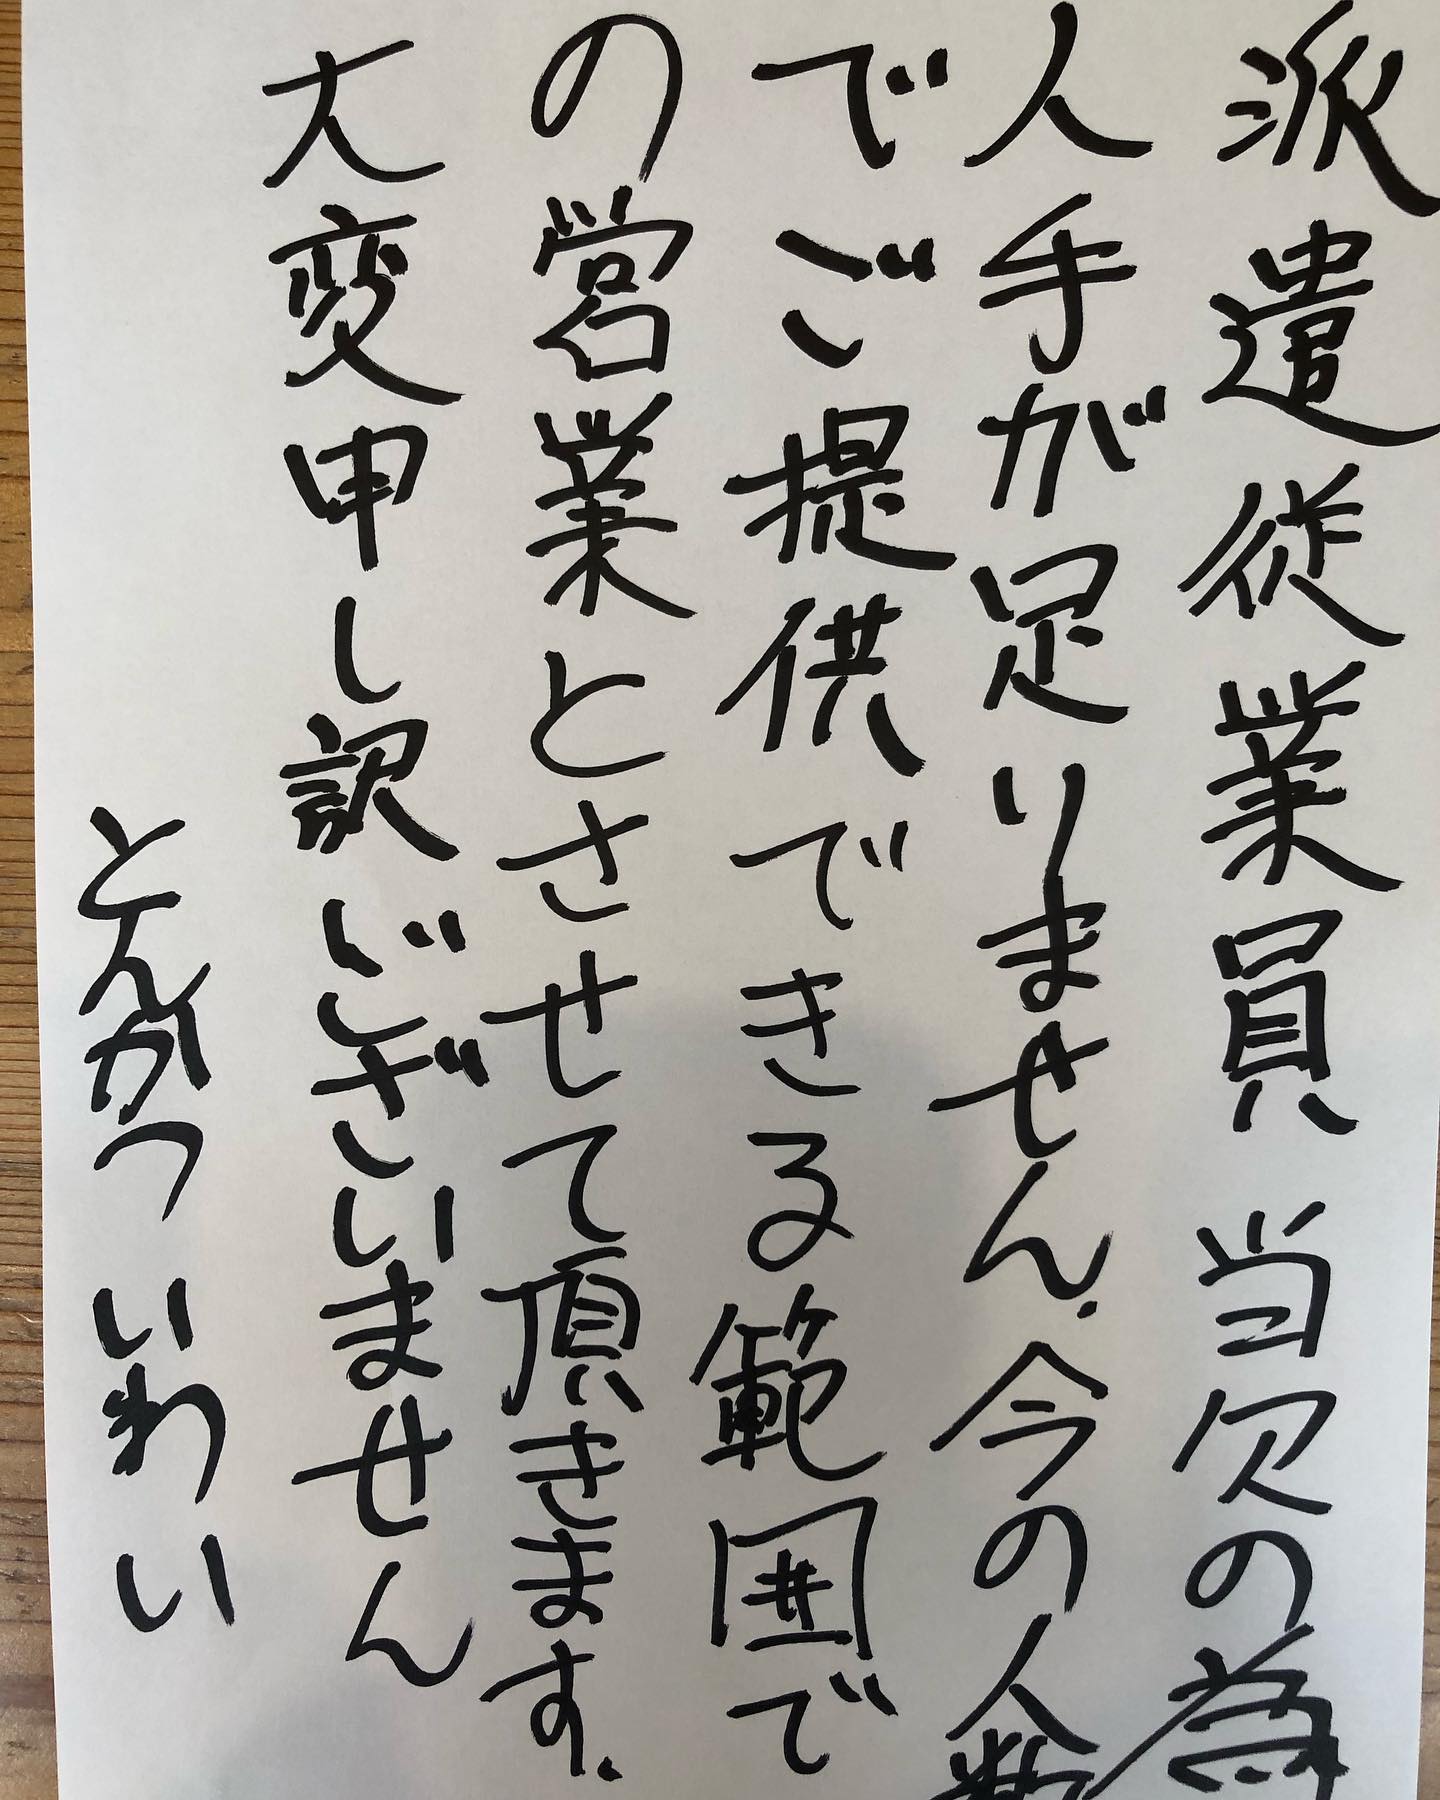 派遣従業員 当欠の為
人手が足りません.今の人数
でご提供できる範囲で
の営業とさせて頂きます.
大変申し訳ございません
とんかつ いわい